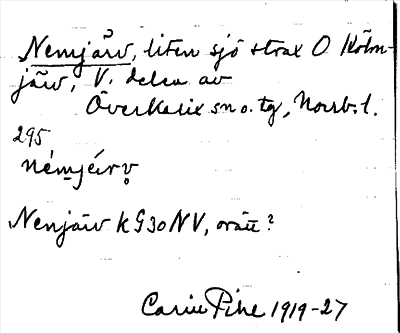 Nemjärv, liten sjö strax O Kölm-
järv, V. delen av
Överkalix sn o. tg, Norrb. l.
295
némjæ̀rv
Nenjärv KG30NV, orätt?
Carin Pihl 1919-27